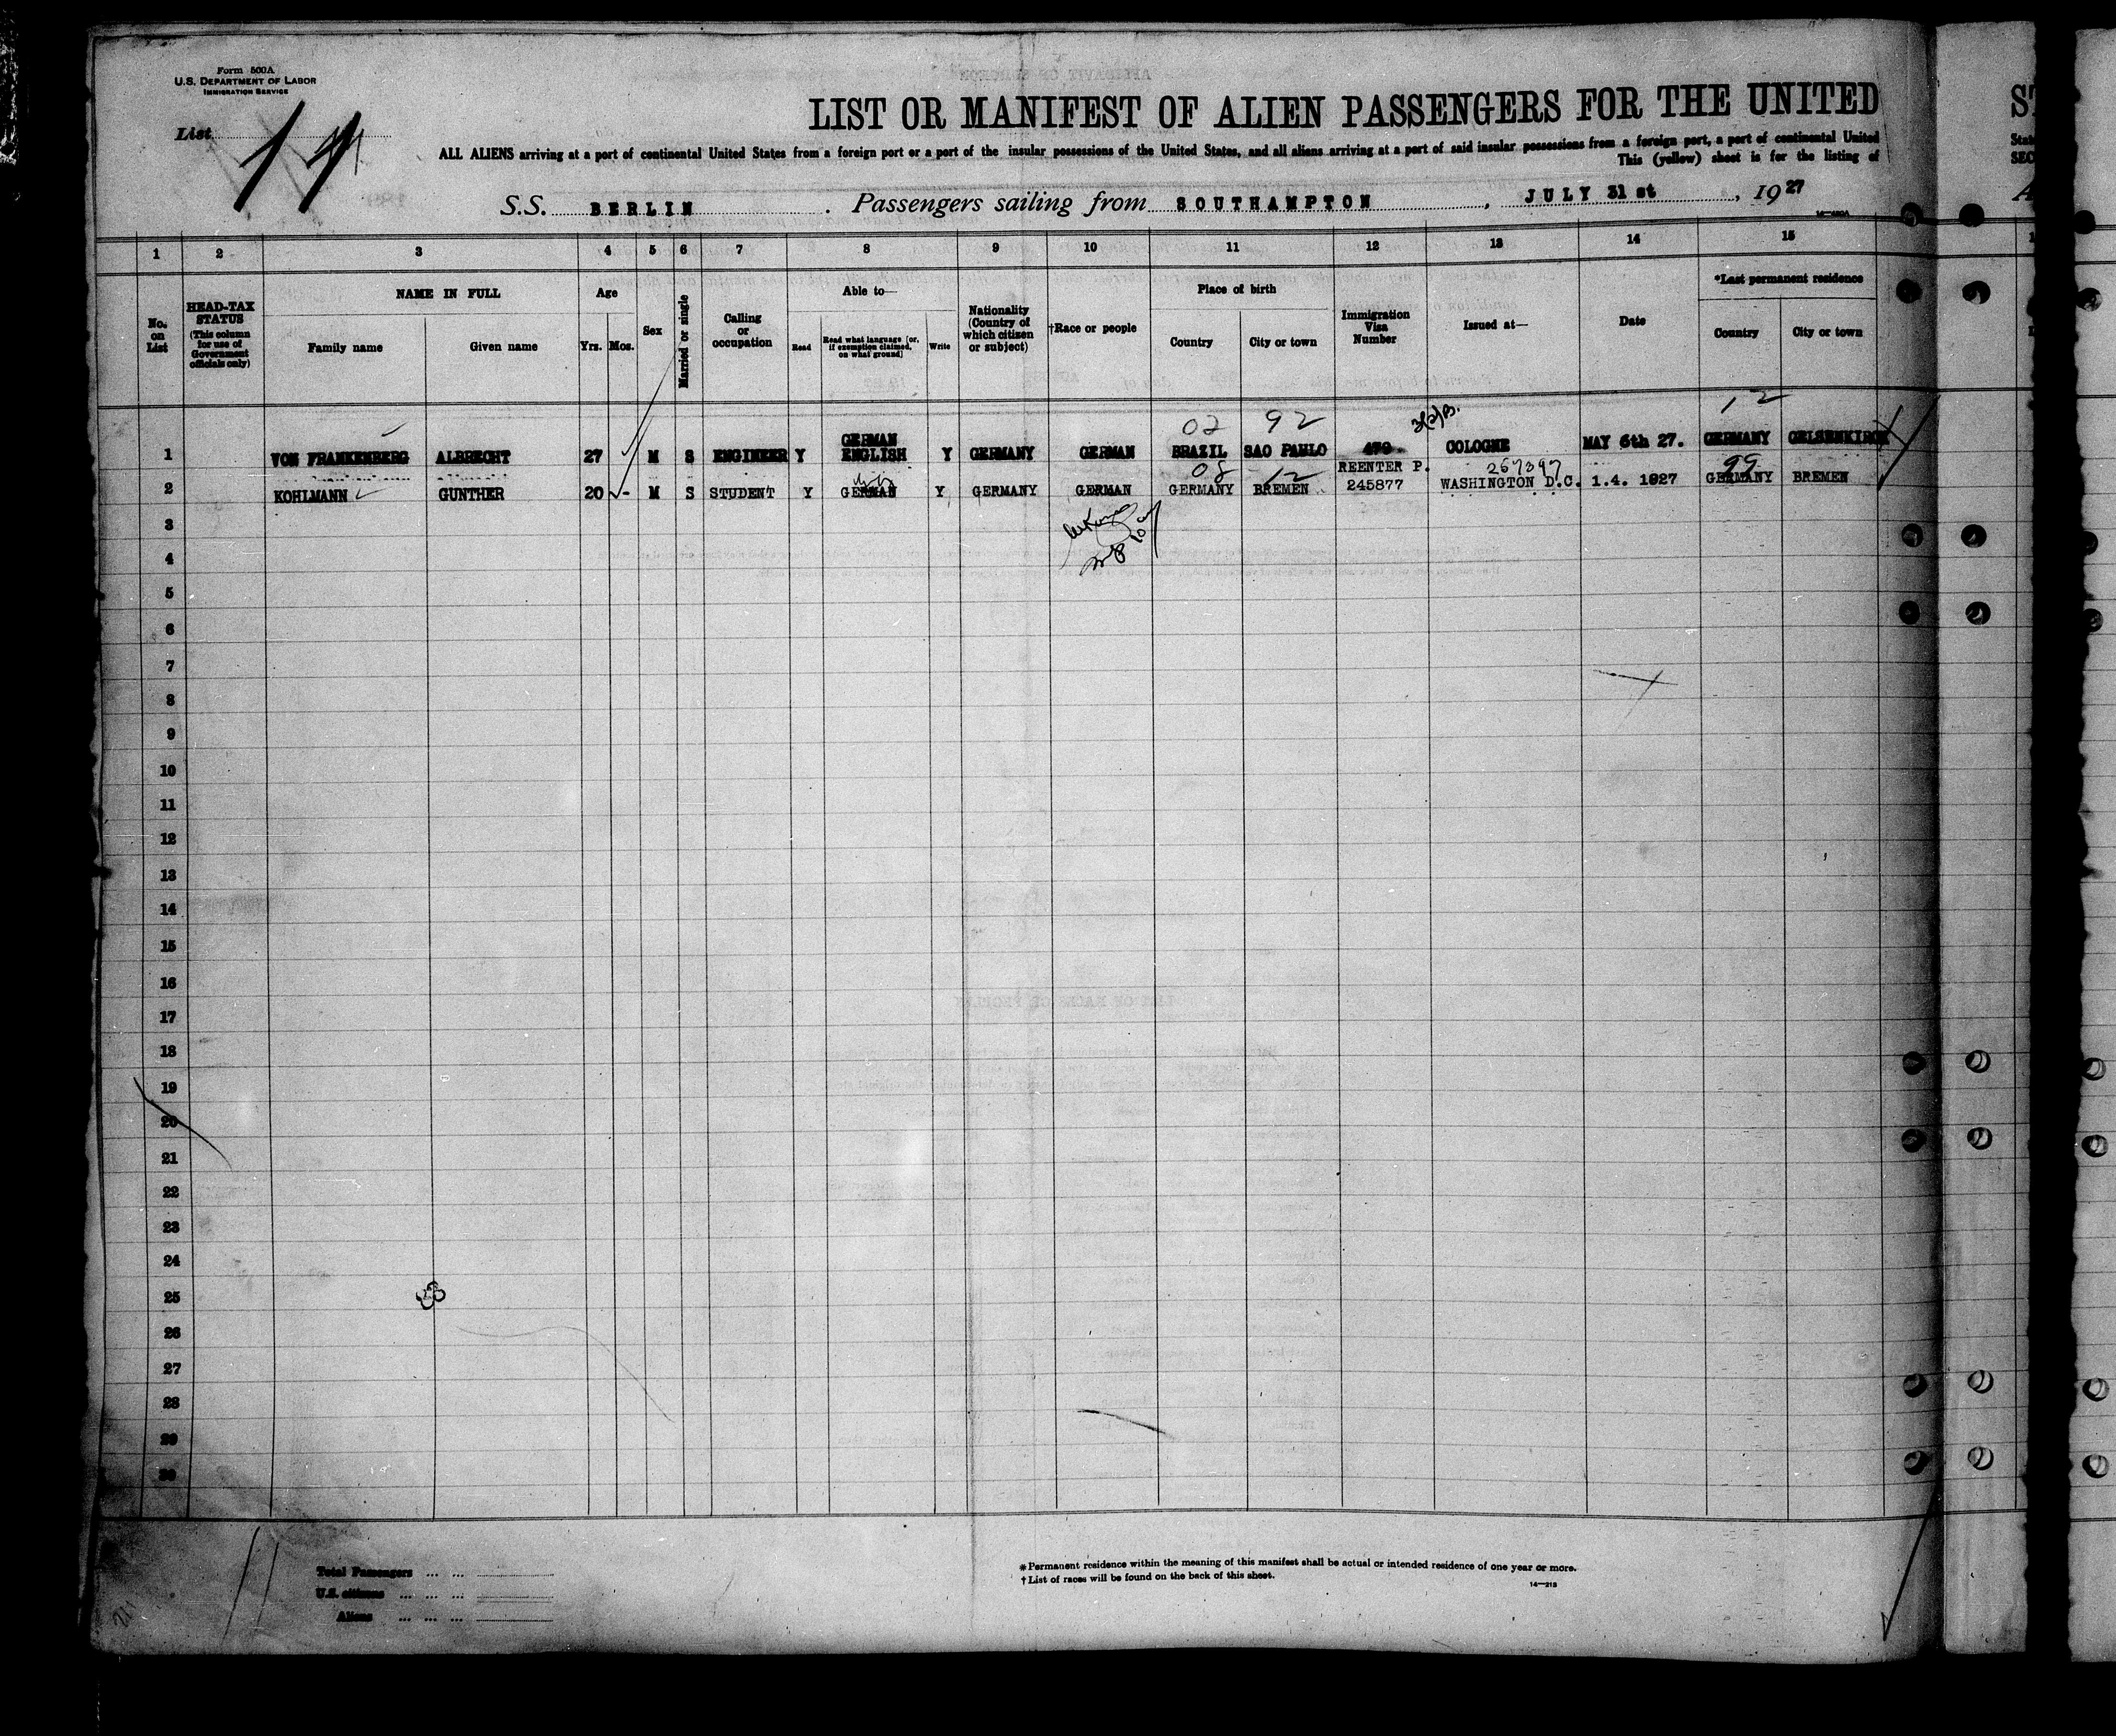 Form 500A
U.S. DEPARTMENT OF LABOR
IMMIGRATION SERVICE
List 14
LIST OR MANIFEST OF ALIEN PASSENGERS FOR THE UNITED
ALL ALIENS arriving at a port of continental United States from a foreign port or a port of the insular possessions of the United States, and all aliens arriving at a port of said insular possessions from a foreign port, a port of continental United
This (yellow) sheet is for the listing of
S.S. BERLIN . Passengers sailing from SOUTHAMPTON , JULY 31 st , 1927
1 2 3 4 5 6 7 8 9 10 11 12 13 14 15
No. on List
HEAD-TAX STATUS (This column for use of Government officials only)
NAME IN FULL
Family name Given name
Age
Yrs. Mos.
Sex
Married or single
Calling or occupation
Able to—
Read Read what language [or, if exemption claimed, on what ground] Write
Nationality (Country of which citizen or subject)
†Race or people
Place of birth
Country City or town
Immigration Visa Number
Issued at—
Date
*Last permanent residence
Country City or town
02 92 12
1 VON FRANKENBERG ALBRECHT 27 M S ENGINEER Y GERMAN ENGLISH Y GERMANY GERMAN BRAZIL SAO PAULO 479 COLOGNE MAY 6th 27. GERMANY GELSENKIRCH
08 12 267397 99
2 KOHLMANN GUNTHER 20 - M S STUDENT Y GERMAN Y GERMANY GERMAN GERMANY BREMEN REENTER P. 245877 WASHINGTON D.C. 1.4. 1927 GERMANY BREMEN
3
4
5
6
7
8
9
10
11
12
13
14
15
16
17
18
19
20
21
22
23
24
25
26
27
28
29
30
Total Passengers ... ...
U.S. citizens ... ... ...
Aliens ... ... ...
*Permanent residence within the meaning of this manifest shall be actual or intended residence of one year or more.
†List of races will be found on the back of this sheet.
14—213